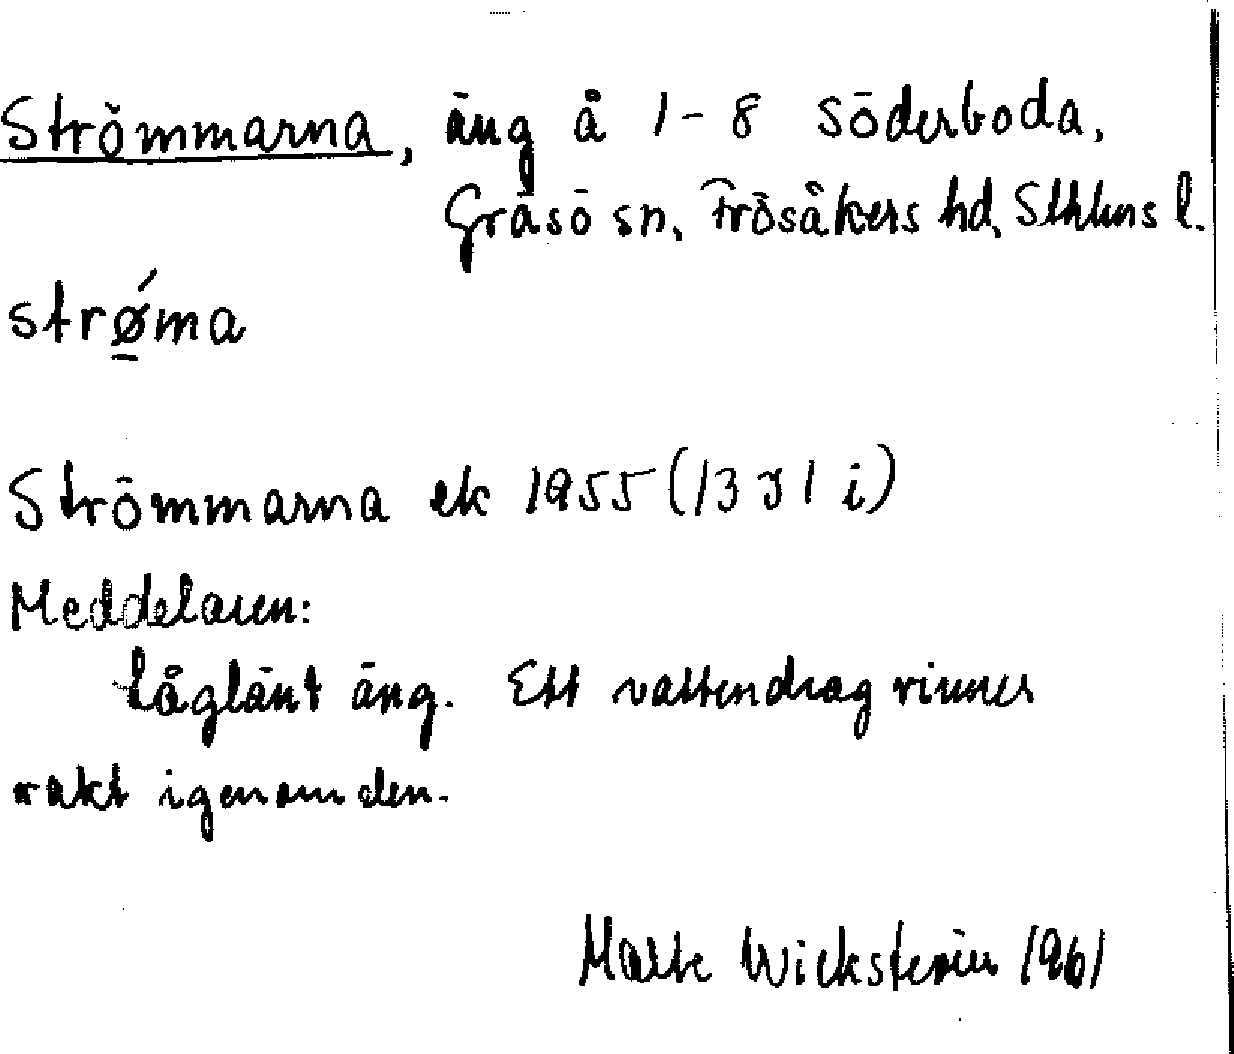 Strömmarna, äng å 1-8 Söderboda,
Gräsö sn, Frösåkers hd, Sthlms l.
strǿ̱ma
Strömmarna ek 1955 (13 J 1 i)
Meddelaren:
Låglänt äng. Ett vattendrag rinner
rakt igenom den.
1961